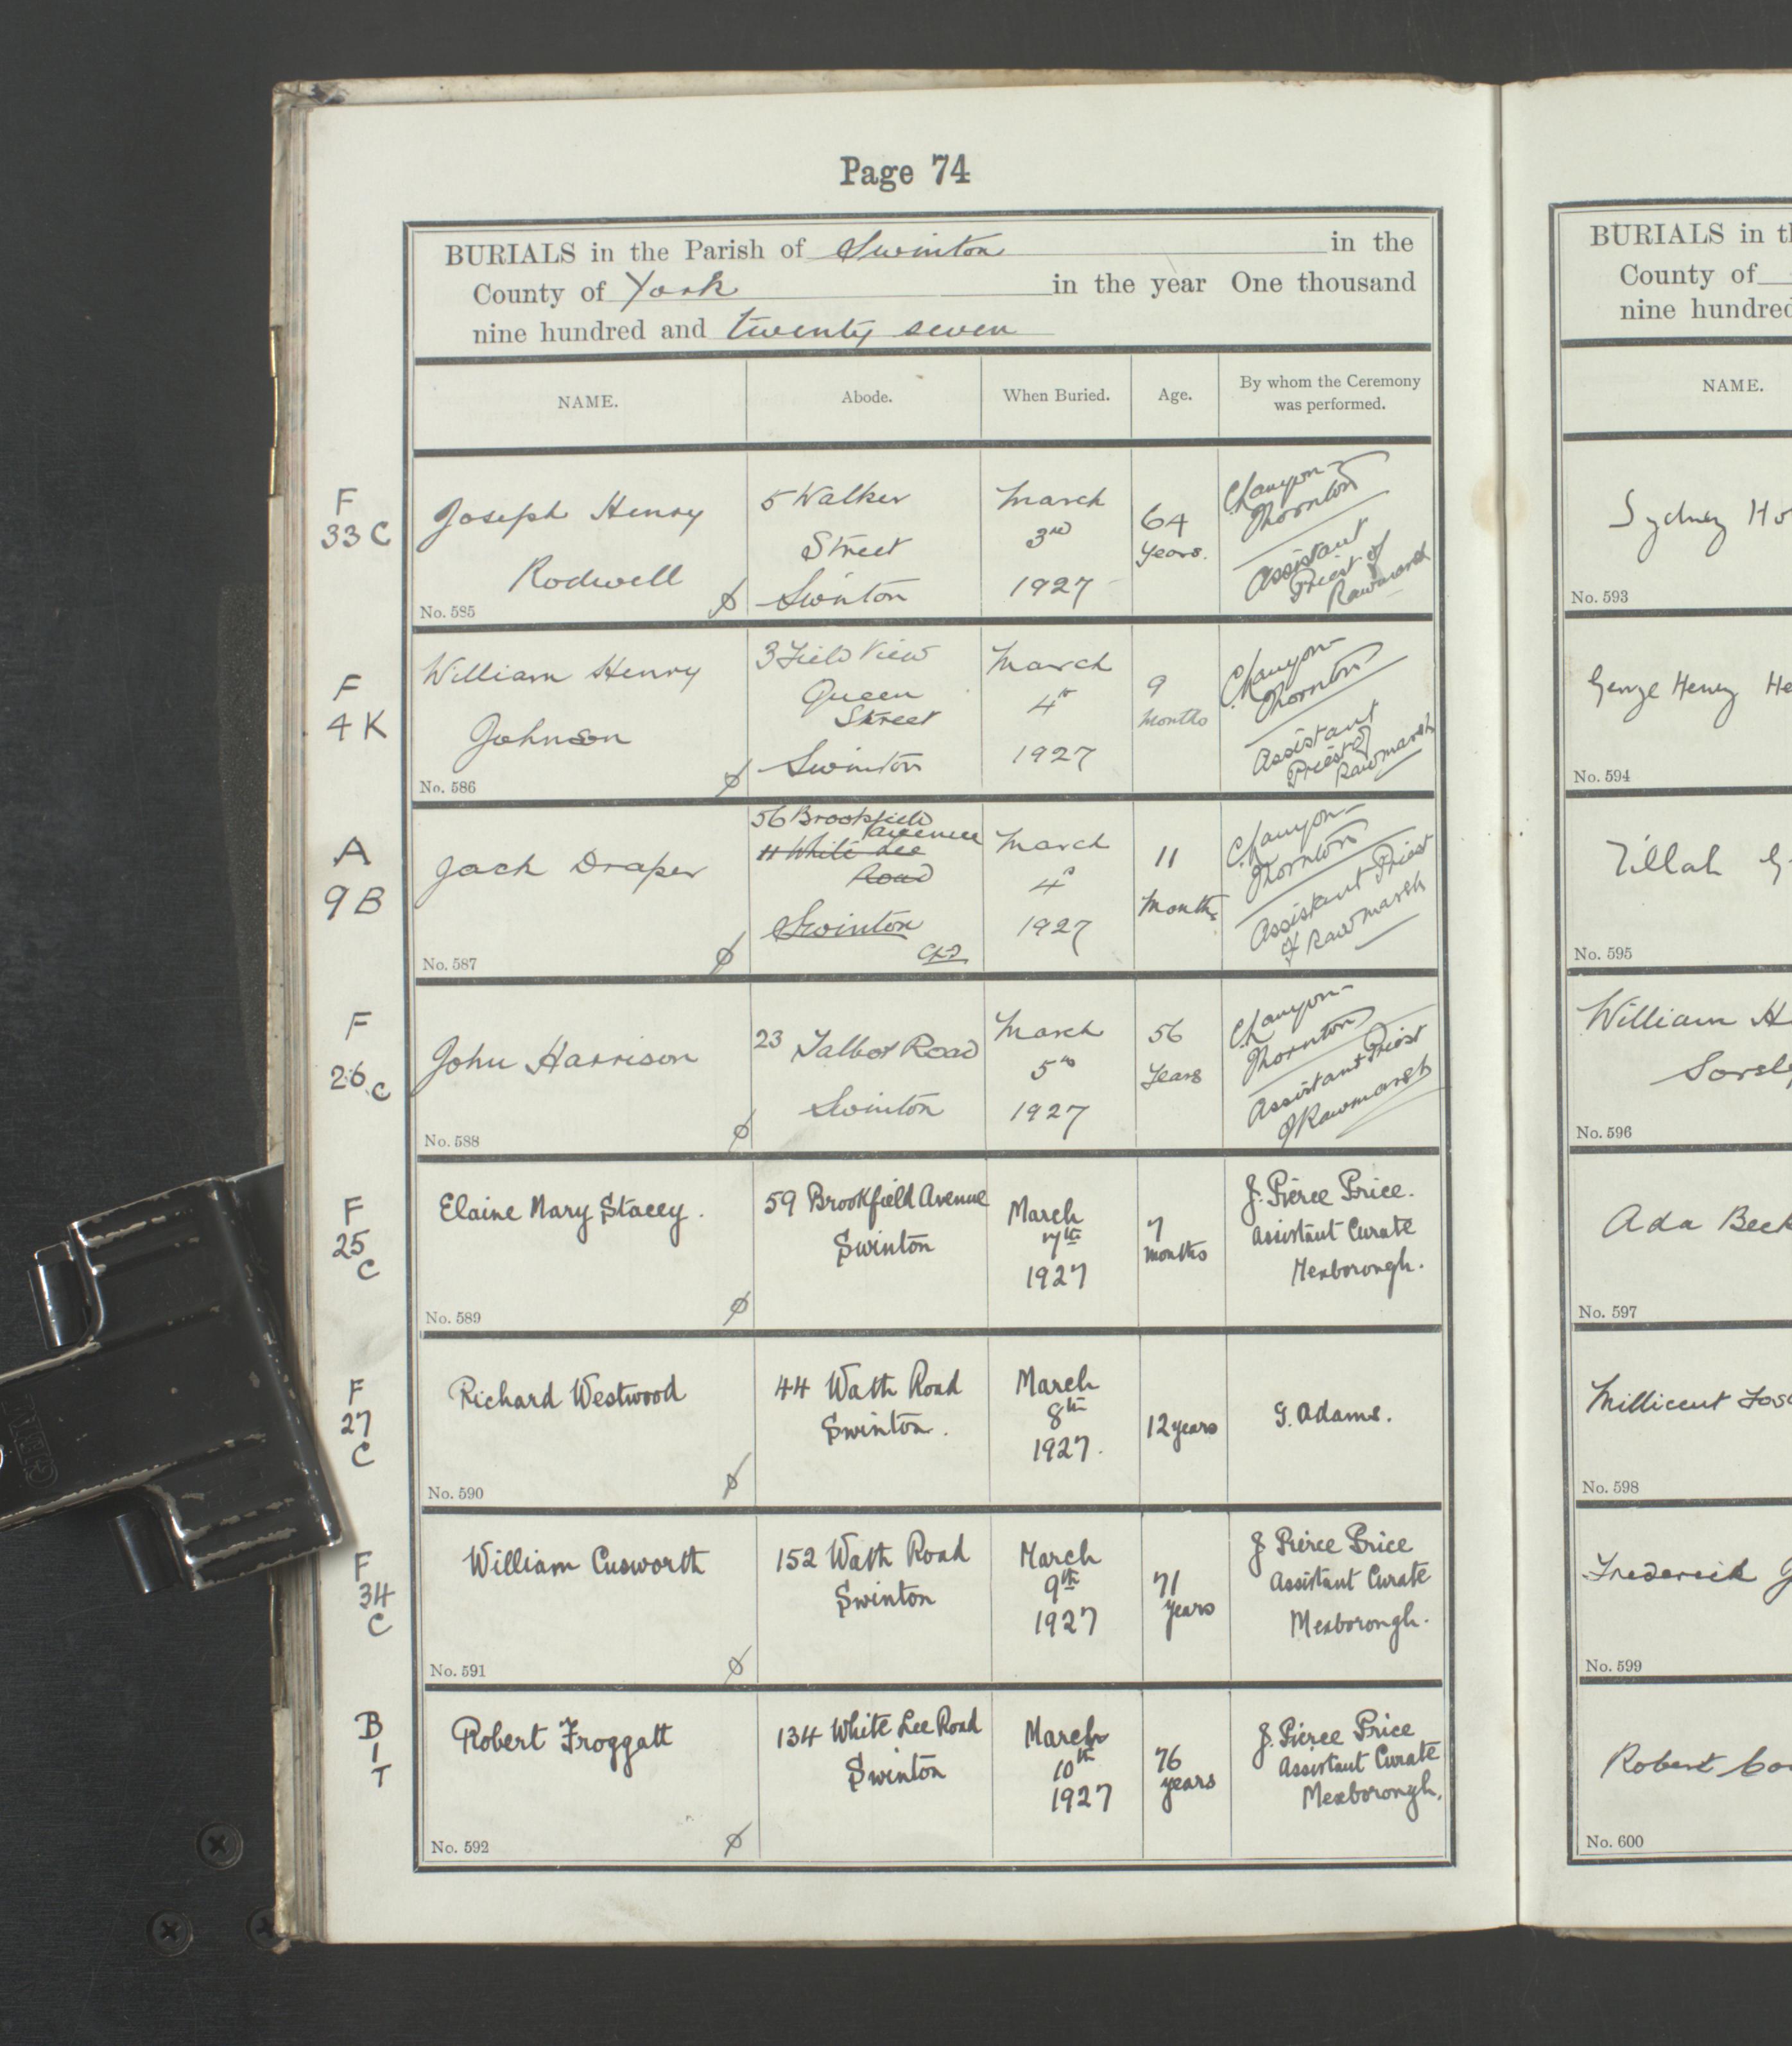 Page 74
BURIALS in the Parish of Swinton in the
County of York in the year One thousand
nine hundred and twenty seven
NAME. Abode. When Buried. Age. By whom the Ceremony was performed.
F
33 C
Joseph Henry
Rodwell
No. 585
5 Walker
Street
Swinton
March
3rd
1927
64
Years.
Chanyon-
Thornton
Assistant
Priest of
Rawmarsh
F
4 K
William Henry
Johnson
No. 586
3 Field View
Queen
Street
Swinton
March
4th
1927
9
Months
Chanyon-
Thornton
Assistant
Priest of
Rawmarsh
A
9 B
Jack Draper
No. 587
56 Brookfield
Avenue
11 White Lee
Road
Swinton
March
4th
1927
11
Months
Chanyon-
Thornton
Assistant Priest
of Rawmarsh
F
26 C
John Harrison
No. 588
23 Talbot Road
Swinton
March
5th
1927
56
Years
Chanyon-
Thornton
Assistant Priest
of Rawmarsh
F
25
C
Elaine Mary Stacey.
No. 589
59 Brookfield Avenue
Swinton
March
7th
1927
7
months
J. Pierce Price.
Assistant Curate
Mexborough.
F
27
C
Richard Westwood
No. 590
44 Wath Road
Swinton.
March
8th
1927.
12 years
G. Adams.
F
34
C
William Cusworth
No. 591
152 Wath Road
Swinton
March
9th
1927
71
years
J Pierce Price
Assistant Curate
Mexborough.
B
1
T
Robert Froggatt
No. 592
134 White Lee Road
Swinton
March
10th
1927
76
years
J. Pierce Price
Assistant Curate
Mexborough.
BURIALS in
County of
nine hundred
NAME.
Sydney
No. 593
George Henry
No. 594
Zillah
No. 595
William
No. 596
Ada
No. 597
Millicent
No. 598
Frederick
No. 599
Robert
No. 600